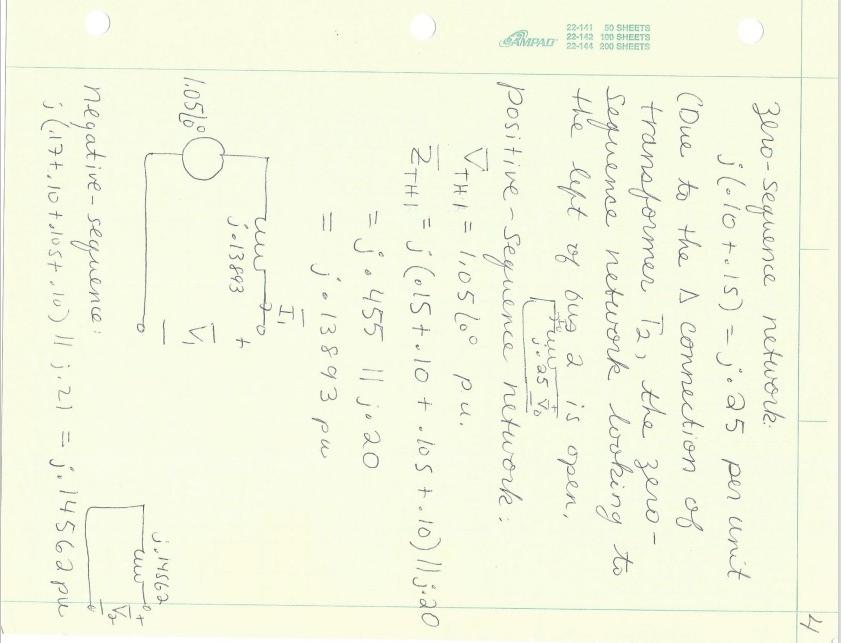 4
22-141 50 SHEETS
22-142 100 SHEETS
22-144 200 SHEETS
AMPAD
Zero-sequence network:
j(.10 + .15) = j.25 per unit
(Due to the Δ connection of
transformer T2, the zero-
sequence network looking to
the left of bus 2 is open.
I0 + j.25 V0 -
positive-sequence network:
V̄TH1 = 1.05∠0° pu.
Z̄TH1 = j(.15 + .10 + .105 + .10) || j.20
= j.455 || j.20
= j.13893 pu
1.05∠0° j.13893 Ī1 + V̄1 -
negative-sequence:
j(.17 + .10 + .105 + .10) || j.21 = j.14562 pu
j.14562 + V̄2